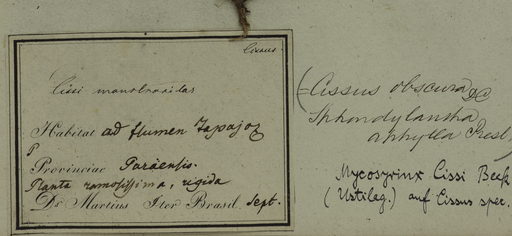 Cissus.
Cissi
Habitat ad flumen Tapajoz
P
Provinciae Paraënsis.
Planta ramosissima, rigida
Dr Martius Iter Brasil. Sept.
(= Cissus obscura DC
Sphondylantha
aphylla Presl)
Mycosyrinx Cissi Beck
(Ustilag.) auf Cissus spec.